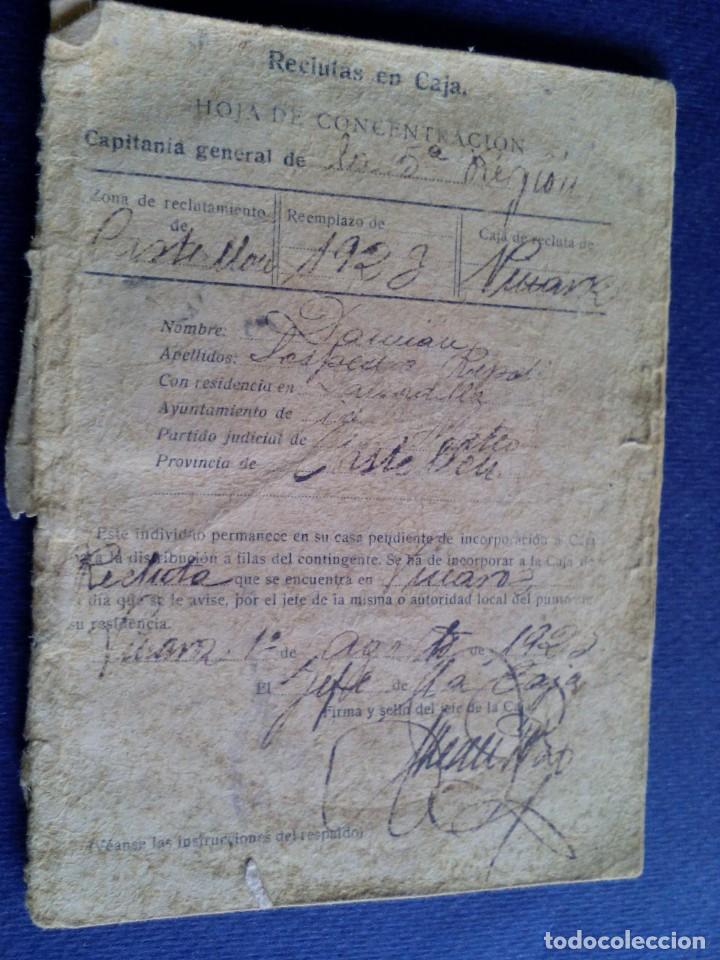 Reclutas en Caja.
HOJA DE CONCENTRACION
Capitanía general de la 5ª Región
Zona de reclutamiento de Castellon
Reemplazo de 1923
Caja de recluta de Vinaroz
Nombre: Damian
Apellidos:
Con residencia en
Ayuntamiento de id
Partido judicial de
Provincia de Castellon
Este individuo permanece en su casa pendiente de incorporación a Caja
a la distribución a filas del contingente. Se ha de incorporar a la Caja de
Recluta que se encuentra en Vinaroz
día que se le avise, por el jefe de la misma o autoridad local del punto de
su residencia.
Vinaroz 1º de agosto de 1923
El Jefe de la Caja
Firma y sello del jefe de la Caja
(Véanse las instrucciones del respaldo)
todocoleccion